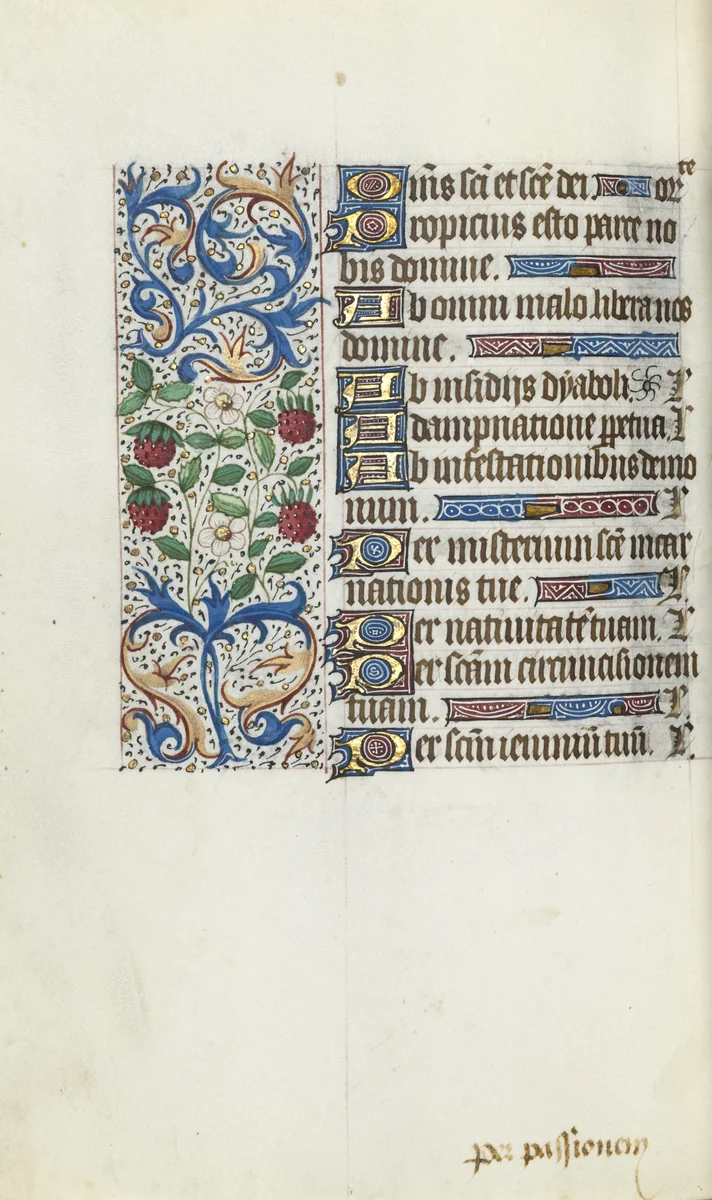 Om̄s sc̄i et sc̄e dei. or
te
Propicius esto parce no
bis domine.
Ab omni malo libera nos
domine.
Ab insidijs dyaboli. L
A dampnatione ꝑpetua. L
Ab infestationibus demo
num. L
Per misterium sc̄e incar
nationis tue. L
Per natiuitatē tuam. L
Per sc̄am circuncisionem
tuam. L
Per sc̄m ieiuniū tuū. L.
per passionem